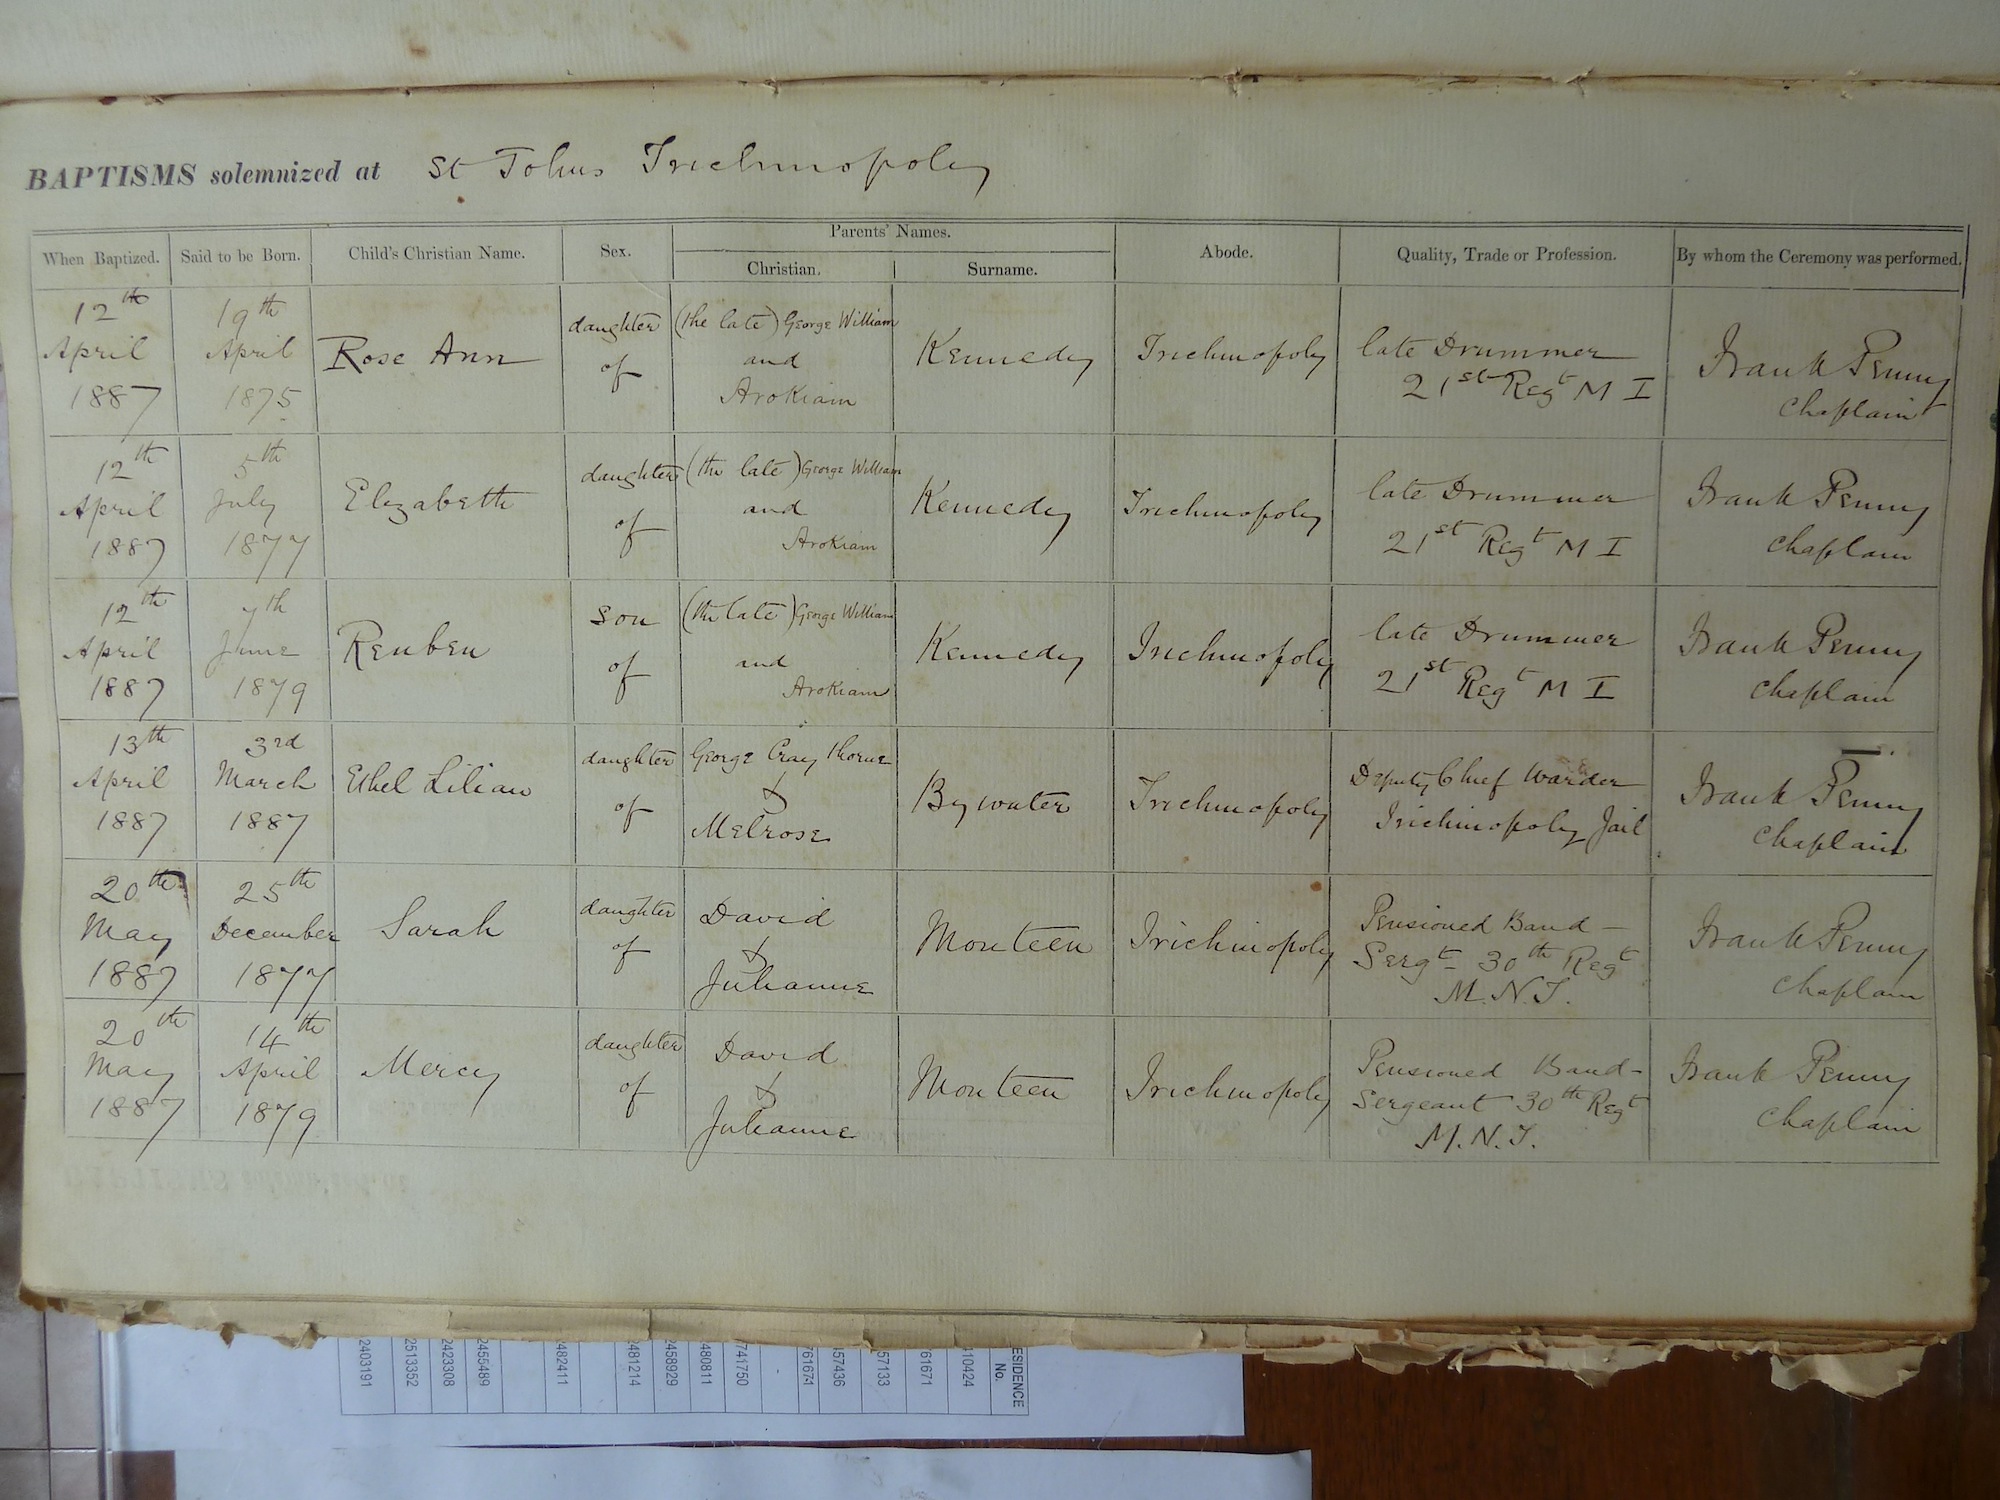 BAPTISMS solemnized at St Johns Trichinopoly
When Baptized. Said to be Born. Child's Christian Name. Sex. Parents' Names. Abode. Quality, Trade or Profession. By whom the Ceremony was performed.
Christian. Surname.
12th April 1887
19th April 1875
Rose Ann
daughter of
(the late) George William
and
Arokiam
Kennedy
Trichinopoly
late Drummer
21st Regt M I
Frank Penny
chaplain
12th April 1887
5th July 1877
Elizabeth
daughter of
(the late) George William
and
Arokiam
Kennedy
Trichinopoly
late Drummer
21st Regt M I
Frank Penny
chaplain
12th April 1887
7th June 1879
Reuben
son of
(the late) George William
and
Arokiam
Kennedy
Trichinopoly
late Drummer
21st Regt M I
Frank Penny
chaplain
13th April 1887
3rd March 1887
Ethel Lilian
daughter of
George Cray thorne
&
Melrose
Bywater
Trichinopoly
Deputy Chief Warder
Trichinopoly Jail
Frank Penny
chaplain
20th May 1887
25th December 1877
Sarah
daughter of
David
&
Julianne
Monteen
Trichinopoly
Pensioned Band-
Sergt- 30th Regt
M.N.I.
Frank Penny
chaplain
20th May 1887
14th April 1879
Mercy
daughter of
David
&
Julianne
Monteen
Trichinopoly
Pensioned Band-
Sergeant 30th Regt
M.N.I.
Frank Penny
chaplain
ESIDENCE
No.
410424
761671
457133
457436
761671
741750
480811
2458929
2481214
2482411
2455489
2423308
2513352
2403191